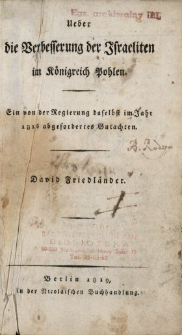 Egz. archiwalny
Ueber
die Verbesserung der Israeliten
im Königreich Pohlen.
Ein von der Regierung daselbst im Jahr
1816 abgefordertes Gutachten.
David Friedländer.
Berlin 1819,
in der Nicolaischen Buchhandlung.